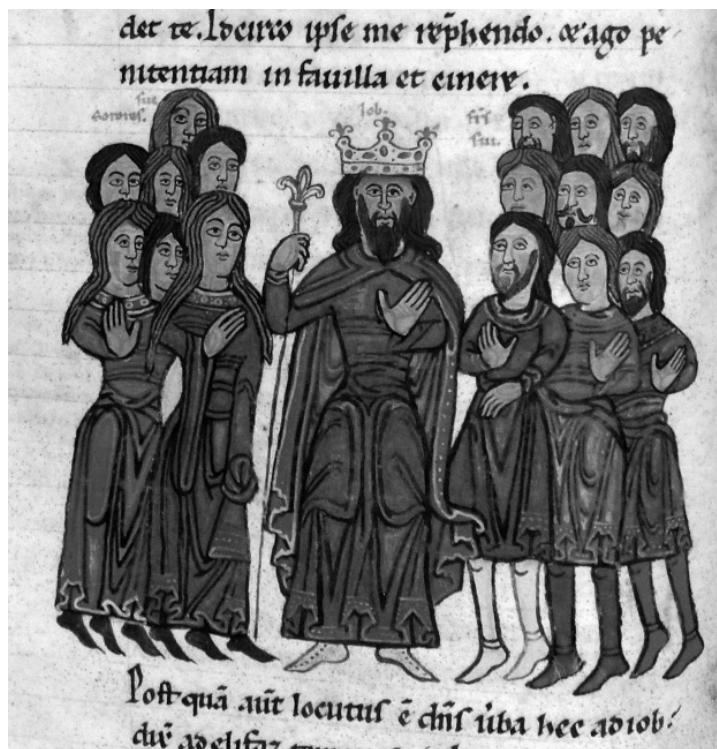 det te. Idcirco ipse me rep̄hendo. et ago pe
nitentiam in fauilla et cinere.
sue
sorores.
Iob.
fr̄s
sui.
Postquā aūt locutus ē dn̄s ūba hec ad iob:
dix̄ ad elifaz